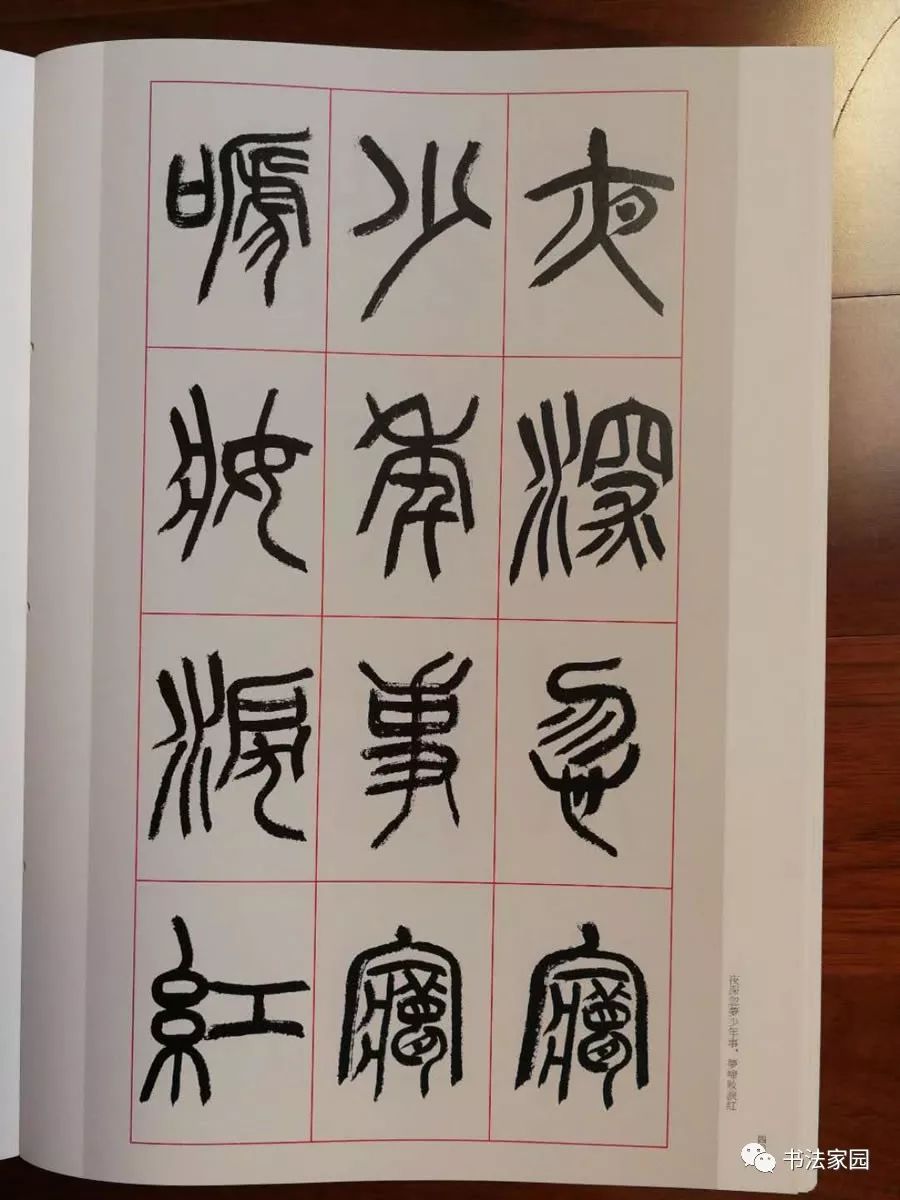 夜深忽夢
少年事夢
嗁妝淚紅
夜深忽夢少年事，夢啼妝淚紅
书法家园